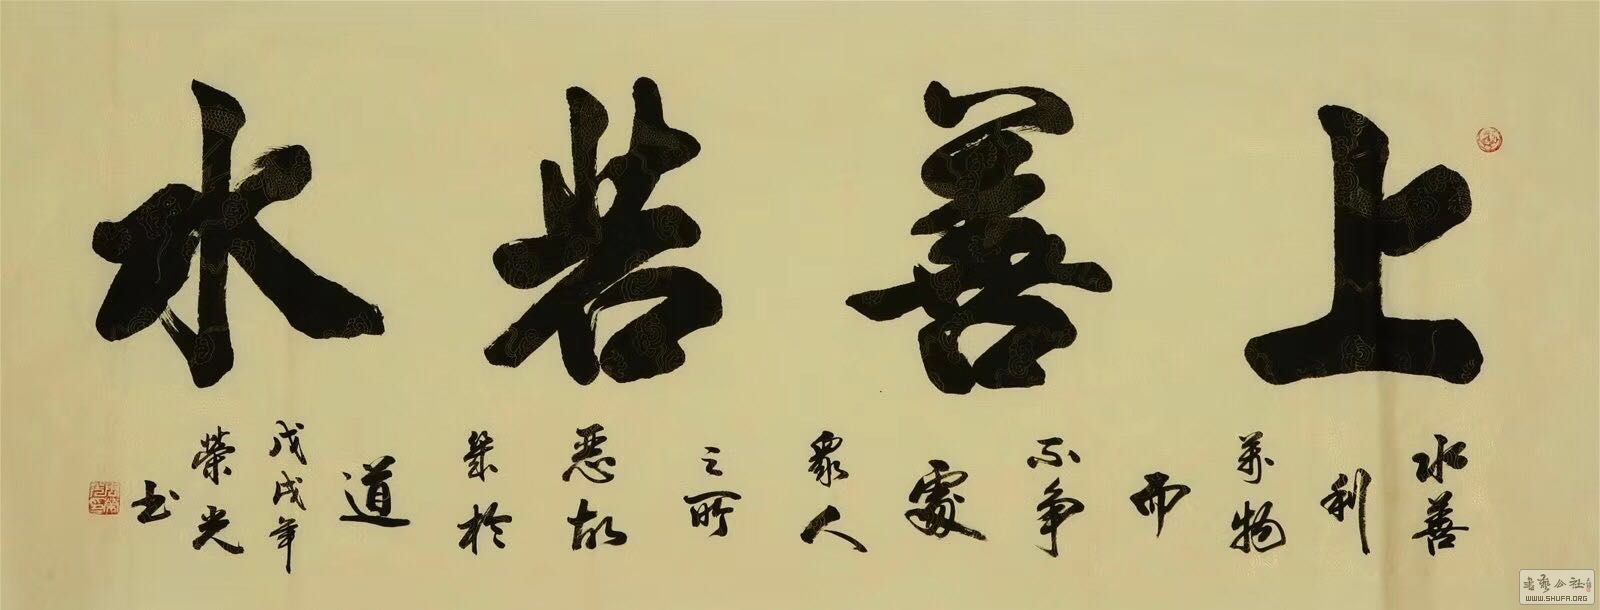 上善若水
水善
利
萬物
而
不争
處
衆人
之所
惡故
幾於
道
戊戌年
榮光
书
書藝公社
WWW.SHUFA.ORG